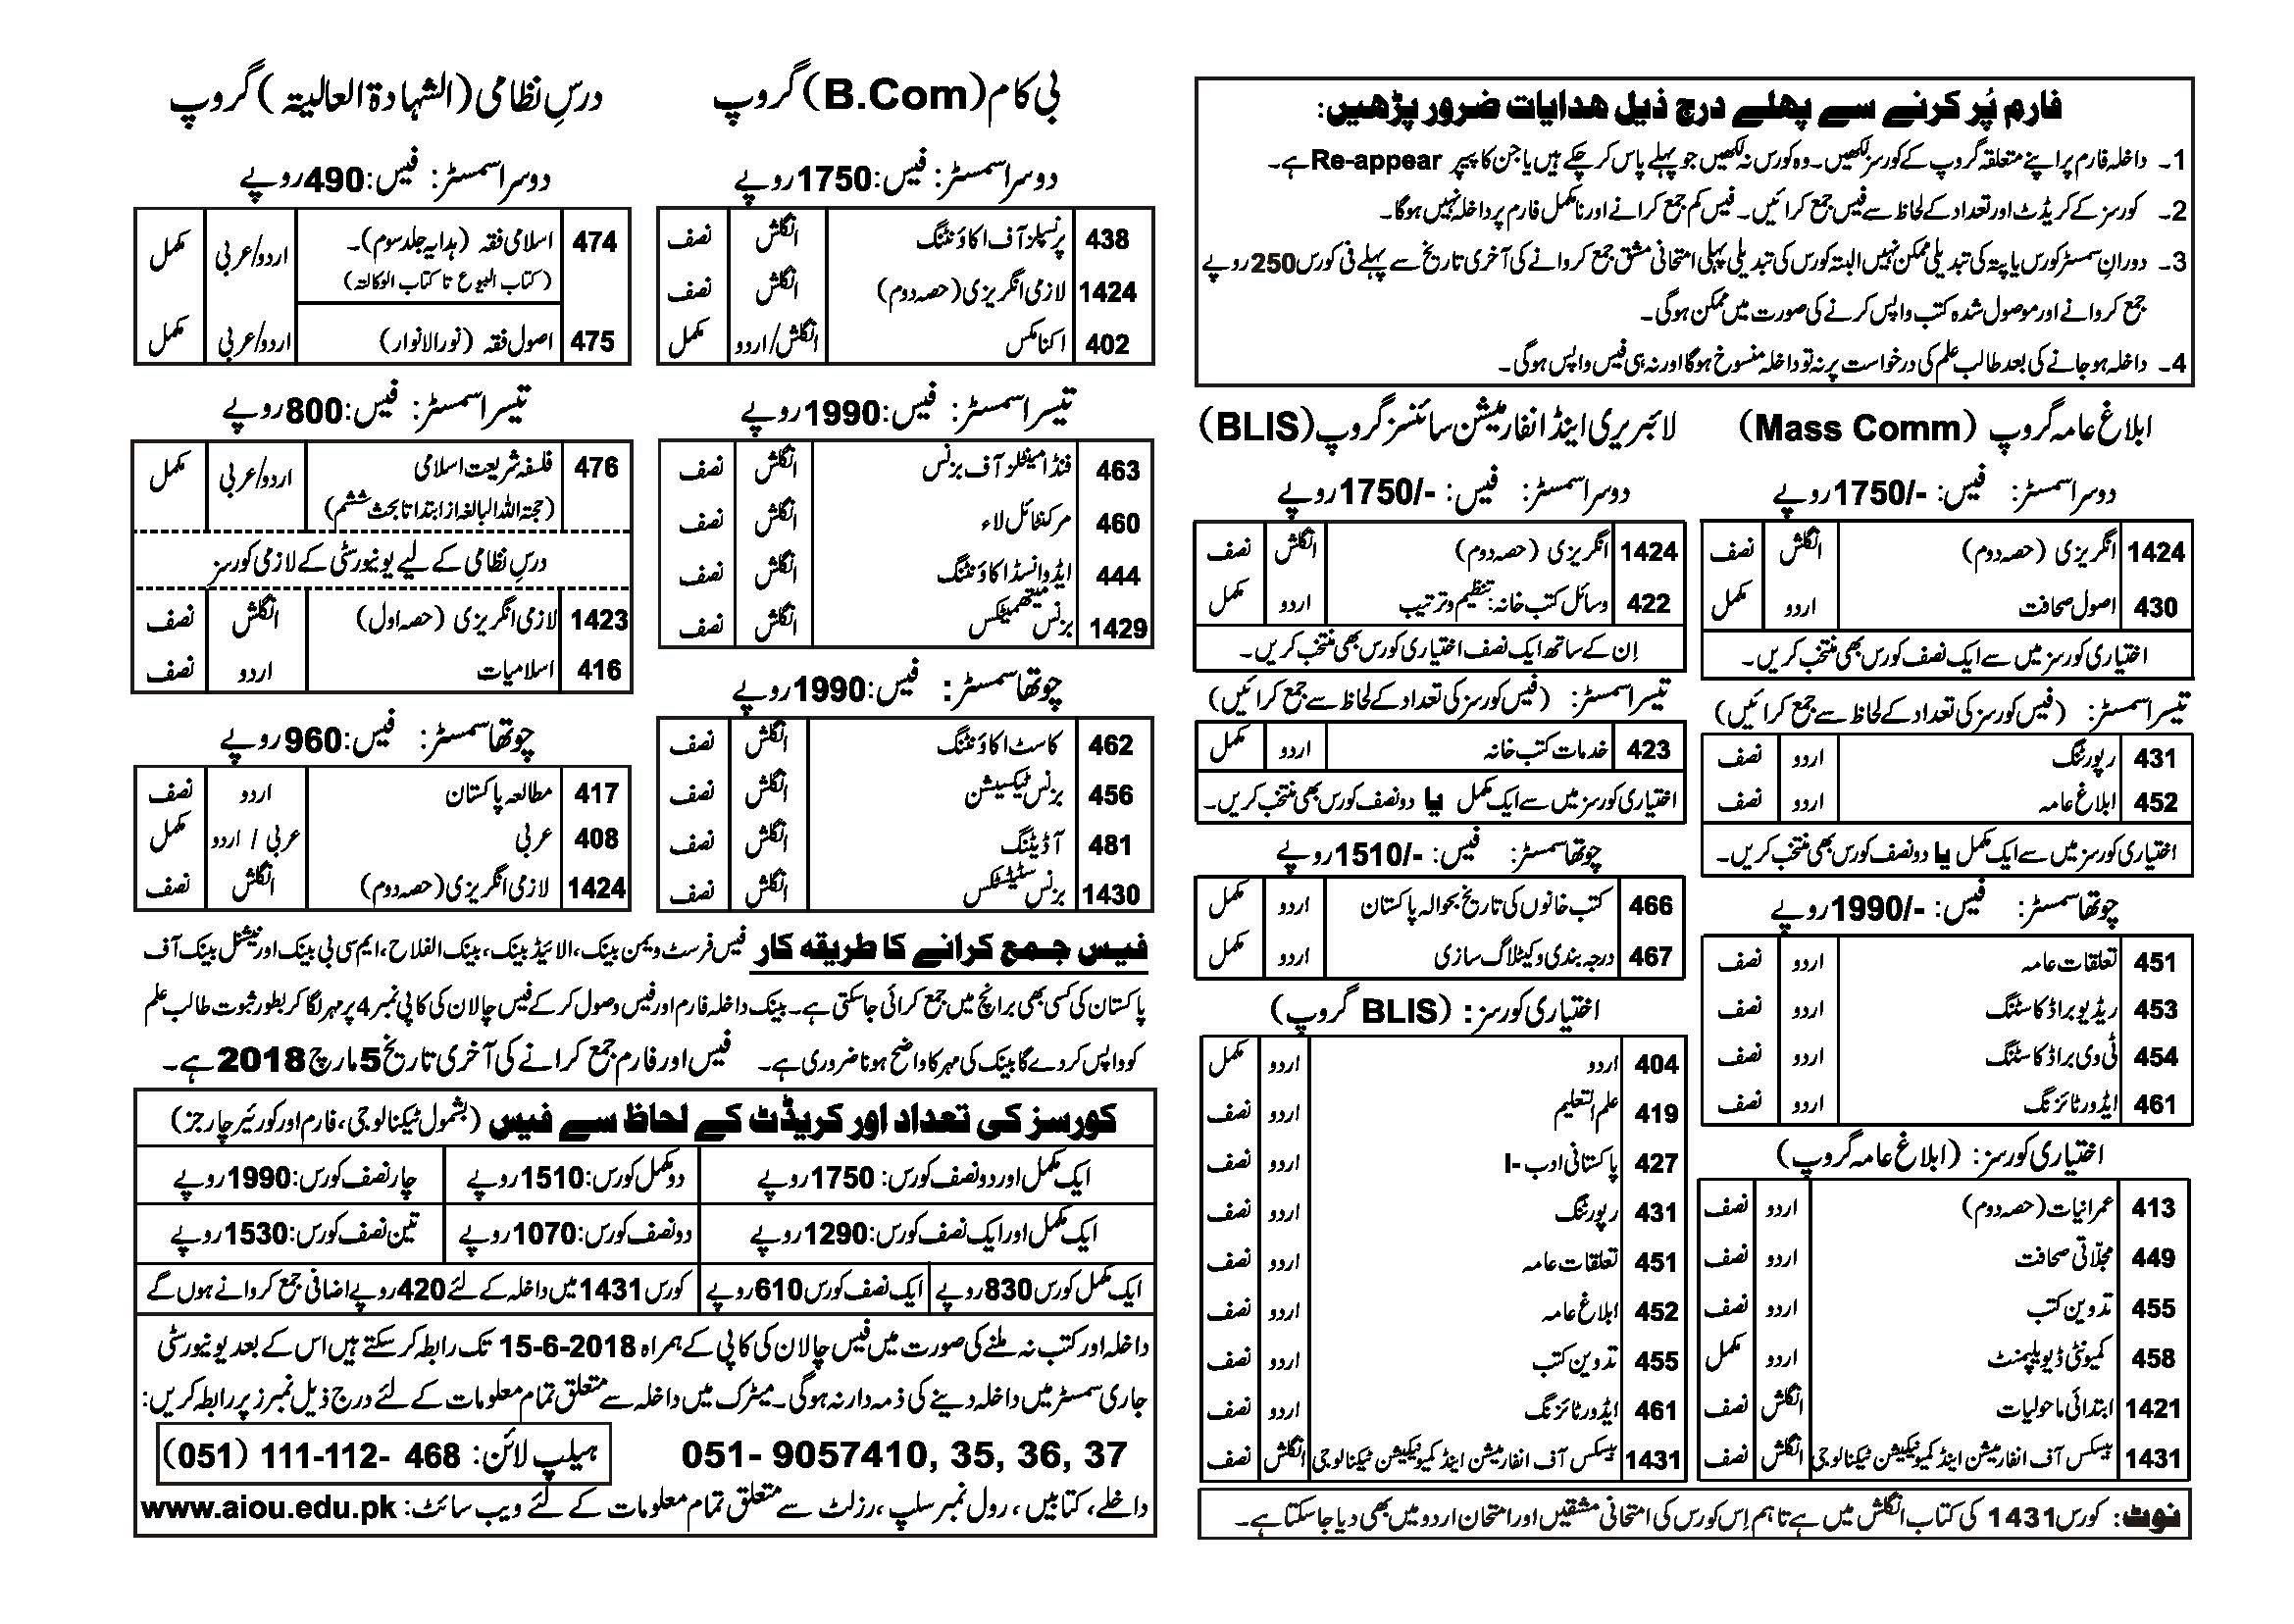 فارم پُر کرنے سے پھلے درج ذیل ھدایات ضرور پڑھیں:
1۔ داخلہ فارم پر اپنے متعلقہ گروپ کے کورسز لکھیں۔ وہ کورس نہ لکھیں جو پہلے پاس کر چکے ہیں یا جن کا پیپر Re-appear ہے۔
2۔ کورسز کے کریڈٹ اور تعداد کے لحاظ سے فیس جمع کرائیں۔ فیس کم جمع کرانے اور نامکمل فارم پر داخلہ نہیں ہوگا۔
3۔ دورانِ سمسٹر کورس یا پتہ کی تبدیلی ممکن نہیں البتہ کورس کی تبدیلی پہلی امتحانی مشق جمع کروانے کی آخری تاریخ سے پہلے فی کورس 250 روپے
جمع کروانے اور موصول شدہ کتب واپس کرنے کی صورت میں ممکن ہوگی۔
4۔ داخلہ ہو جانے کی بعد طالب علم کی درخواست پر نہ تو داخلہ منسوخ ہوگا اور نہ ہی فیس واپس ہوگی۔
ابلاغ عامہ گروپ (Mass Comm)
دوسرا سمسٹر: فیس: -/1750 روپے
1424 انگریزی (حصہ دوم) انگلش نصف
430 اصول صحافت اردو مکمل
اختیاری کورسز میں سے ایک نصف کورس بھی منتخب کریں۔
تیسرا سمسٹر: (فیس کورسز کی تعداد کے لحاظ سے جمع کرائیں)
431 رپورٹنگ اردو نصف
452 ابلاغ عامہ اردو نصف
اختیاری کورسز میں سے ایک مکمل یا دو نصف کورس بھی منتخب کریں۔
چوتھا سمسٹر: فیس: -/1990 روپے
451 تعلقات عامہ اردو نصف
453 ریڈیو براڈ کاسٹنگ اردو نصف
454 ٹی وی براڈ کاسٹنگ اردو نصف
461 ایڈورٹائزنگ اردو نصف
اختیاری کورسز: (ابلاغ عامہ گروپ)
413 عمرانیات (حصہ دوم) اردو نصف
449 مجلّاتی صحافت اردو نصف
455 تدوین کتب اردو نصف
458 کمیونٹی ڈیویلپمنٹ اردو مکمل
1421 ابتدائی ماحولیات انگلش نصف
1431 بیسکس آف انفارمیشن اینڈ کمیونیکیشن ٹیکنالوجی انگلش نصف
لائبریری اینڈ انفارمیشن سائنسز گروپ (BLIS)
دوسرا سمسٹر: فیس: -/1750 روپے
1424 انگریزی (حصہ دوم) انگلش نصف
422 وسائل کتب خانہ: تنظیم و ترتیب اردو مکمل
اِن کے ساتھ ایک نصف اختیاری کورس بھی منتخب کریں۔
تیسرا سمسٹر: (فیس کورسز کی تعداد کے لحاظ سے جمع کرائیں)
423 خدمات کتب خانہ اردو مکمل
اختیاری کورسز میں سے ایک مکمل یا دو نصف کورس بھی منتخب کریں۔
چوتھا سمسٹر: فیس: -/1510 روپے
466 کتب خانوں کی تاریخ بحوالہ پاکستان اردو مکمل
467 درجہ بندی و کیٹلاگ سازی اردو مکمل
اختیاری کورسز: (BLIS گروپ)
404 اردو اردو مکمل
419 علم التعلیم اردو نصف
427 پاکستانی ادب -I اردو نصف
431 رپورٹنگ اردو نصف
451 تعلقات عامہ اردو نصف
452 ابلاغ عامہ اردو نصف
455 تدوین کتب اردو نصف
461 ایڈورٹائزنگ اردو نصف
1431 بیسکس آف انفارمیشن اینڈ کمیونیکیشن ٹیکنالوجی انگلش نصف
نوٹ: کورس 1431 کی کتاب انگلش میں ہے تاہم اِس کورس کی امتحانی مشقیں اور امتحان اردو میں بھی دیا جا سکتا ہے۔
بی کام (B.Com) گروپ
دوسرا سمسٹر: فیس: 1750 روپے
438 پرنسپلز آف اکاؤنٹنگ انگلش نصف
1424 لازمی انگریزی (حصہ دوم) انگلش نصف
402 اکنامکس انگلش/اردو مکمل
تیسرا سمسٹر: فیس: 1990 روپے
463 فنڈامینٹلز آف بزنس انگلش نصف
460 مرکنٹائل لاء انگلش نصف
444 ایڈوانسڈ اکاؤنٹنگ انگلش نصف
1429 بزنس میتھمیٹکس انگلش نصف
چوتھا سمسٹر: فیس: 1990 روپے
462 کاسٹ اکاؤنٹنگ انگلش نصف
456 بزنس ٹیکسیشن انگلش نصف
481 آڈیٹنگ انگلش نصف
1430 بزنس سٹیٹسٹکس انگلش نصف
درسِ نظامی (الشہادۃ العالیۃ) گروپ
دوسرا سمسٹر: فیس: 490 روپے
474 اسلامی فقہ (ہدایہ جلد سوم)۔ اردو/عربی مکمل
(کتاب البیوع تا کتاب الوکالتہ)
475 اصول فقہ (نور الانوار) اردو/عربی مکمل
تیسرا سمسٹر: فیس: 800 روپے
476 فلسفہ شریعت اسلامی اردو/عربی مکمل
(حجتہ اللہ البالغہ از ابتدا تا بحث ششم)
درسِ نظامی کے لیے یونیورسٹی کے لازمی کورسز
1423 لازمی انگریزی (حصہ اول) انگلش نصف
416 اسلامیات اردو نصف
چوتھا سمسٹر: فیس: 960 روپے
417 مطالعہ پاکستان اردو نصف
408 عربی عربی / اردو مکمل
1424 لازمی انگریزی (حصہ دوم) انگلش نصف
فیس جمع کرانے کا طریقہ کار فیس فرسٹ ویمن بینک، الائیڈ بینک، بینک الفلاح، ایم سی بی بینک اور نیشنل بینک آف
پاکستان کی کسی بھی برانچ میں جمع کرائی جا سکتی ہے۔ بینک داخلہ فارم اور فیس وصول کر کے فیس چالان کی کاپی نمبر 4 پر مہر لگا کر بطور ثبوت طالب علم
کو واپس کر دے گا بینک کی مہر کا واضح ہونا ضروری ہے۔ فیس اور فارم جمع کرانے کی آخری تاریخ 5 مارچ 2018 ہے۔
کورسز کی تعداد اور کریڈٹ کے لحاظ سے فیس (بشمول ٹیکنالوجی، فارم اور کورئیر چارجز)
ایک مکمل اور دو نصف کورس: 1750 روپے دو مکمل کورس: 1510 روپے چار نصف کورس: 1990 روپے
ایک مکمل اور ایک نصف کورس: 1290 روپے دو نصف کورس: 1070 روپے تین نصف کورس: 1530 روپے
ایک مکمل کورس 830 روپے ایک نصف کورس 610 روپے کورس 1431 میں داخلہ کے لئے 420 روپے اضافی جمع کروانے ہوں گے
داخلہ اور کتب نہ ملنے کی صورت میں فیس چالان کی کاپی کے ہمراہ 15-6-2018 تک رابطہ کر سکتے ہیں اس کے بعد یونیورسٹی
جاری سمسٹر میں داخلہ دینے کی ذمہ دار نہ ہوگی۔ میٹرک میں داخلہ سے متعلق تمام معلومات کے لئے درج ذیل نمبرز پر رابطہ کریں:
051- 9057410, 35, 36, 37 ہیلپ لائن: (051) 111-112- 468
داخلے، کتابیں، رول نمبر سلپ، رزلٹ سے متعلق تمام معلومات کے لئے ویب سائٹ: www.aiou.edu.pk